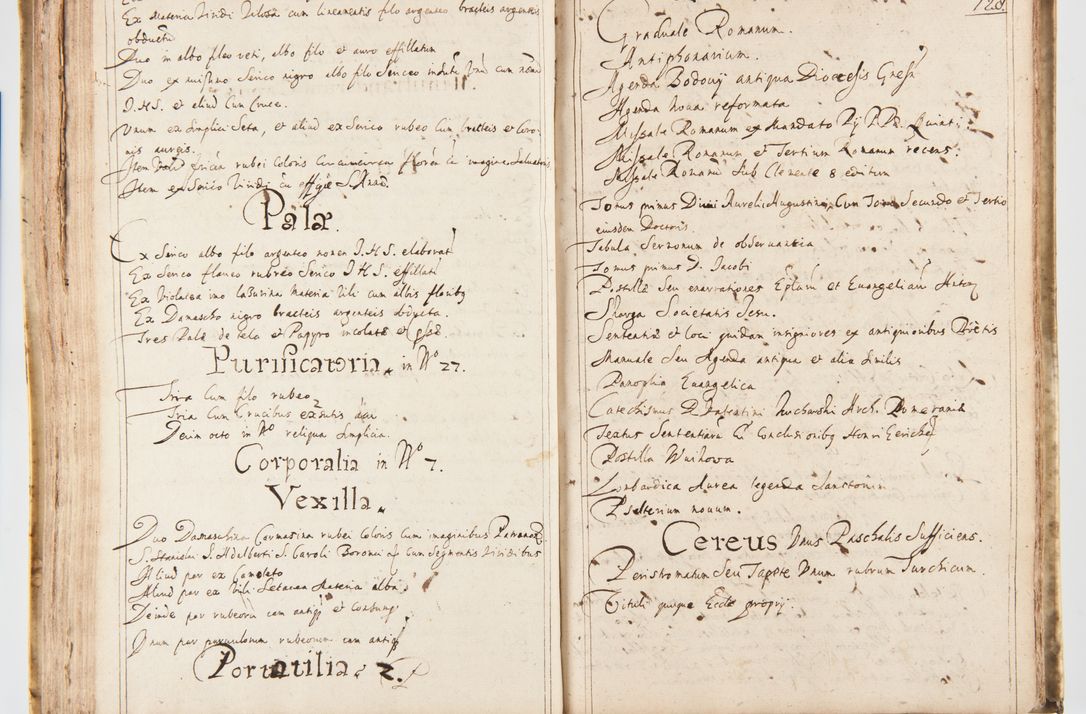 Ex Materia Viridi Vilosa cum lineamentis filo argenteo bracteis argenteis
obducta
Duo in albo flavo veti, albo filo et auro effillatum
Duo ex Serico nigro albo filo Sericeo cum
I.H.S. et aliud Cum Cruce.
Unum ex simplici Seta, et aliud ex Serico rubeo Cum bracteis et Coro
nis aureis.
Item rubei Coloris Circumcirca imagine Salvatoris
Item ex Serico Viridi cū effigie S. Annae
Palæ.
Ex Serico albo filo argenteo nomen I.H.S. elaborat
Ex Serico flaveo rubreo Serico I.H.S. effillati
Ex Violacea imo laSurina Materia Vili cum albis floribq
Ex Damascho nigro bracteis argenteis obducta.
Tres Palæ de tela et Papyro et
Purificatoria. in No 27.
Tria Cum filo rubeo
Tria Cum Crucibus
Deim octo in No reliqua Simplicia.
Corporalia in No 7.
Vexilla.
Duo Damaschina Carmasina rubei Coloris Cum imaginibus Patronor
S. Stanislai S. Adalberti S. Caroli Boromei aq Cum Segmentis Viridibus
Aliud par ex
Aliud par ex Vili Setacea Materia alba.
Deinde par rubeorū iam antiq et
Unum par parvulorum rubeorum iam antiq
Portatilia. 2.
128.
Graduale Romanum.
Antiphonarium.
Agenda Bodovij antiqua Diocesis Gnesn
Agenda nova reformata
Missale Romanum ex Mandato Pij P.P. Quinti
Missale Romanum et Tertium Romanum recens.
Missale Romanū Sub Clemente 8 editum
Tomus primus Divi Aureli Augustini, Cum Tomo Secundo et Tertio
eiusdem Doctoris.
Tabula Sermonum de observantia
Tomus primus D. Jacobi
Postillæ Seu enarrationes Eplarum et Evangeliarū
Skarga Societatis Jesu.
Sententiæ et loci quidam insigniores ex antiquioribus
Manuale Seu Agenda antiqua et alia Similis
Panoplia Evangelica
Catechismus D. Valentini Arch. Pomeraniæ
Textus Sententiarū Cū Conclusionibq Henri
Postilla Wuikowa
Lonbardica Aurea legenda Sanctorum
Psalterium novum.
Cereus Unus Paschalis Sufficiens.
Peristromatum Seu Tapete Unum rubrum Turchicum.
Tituli quinque Eccle proprij.